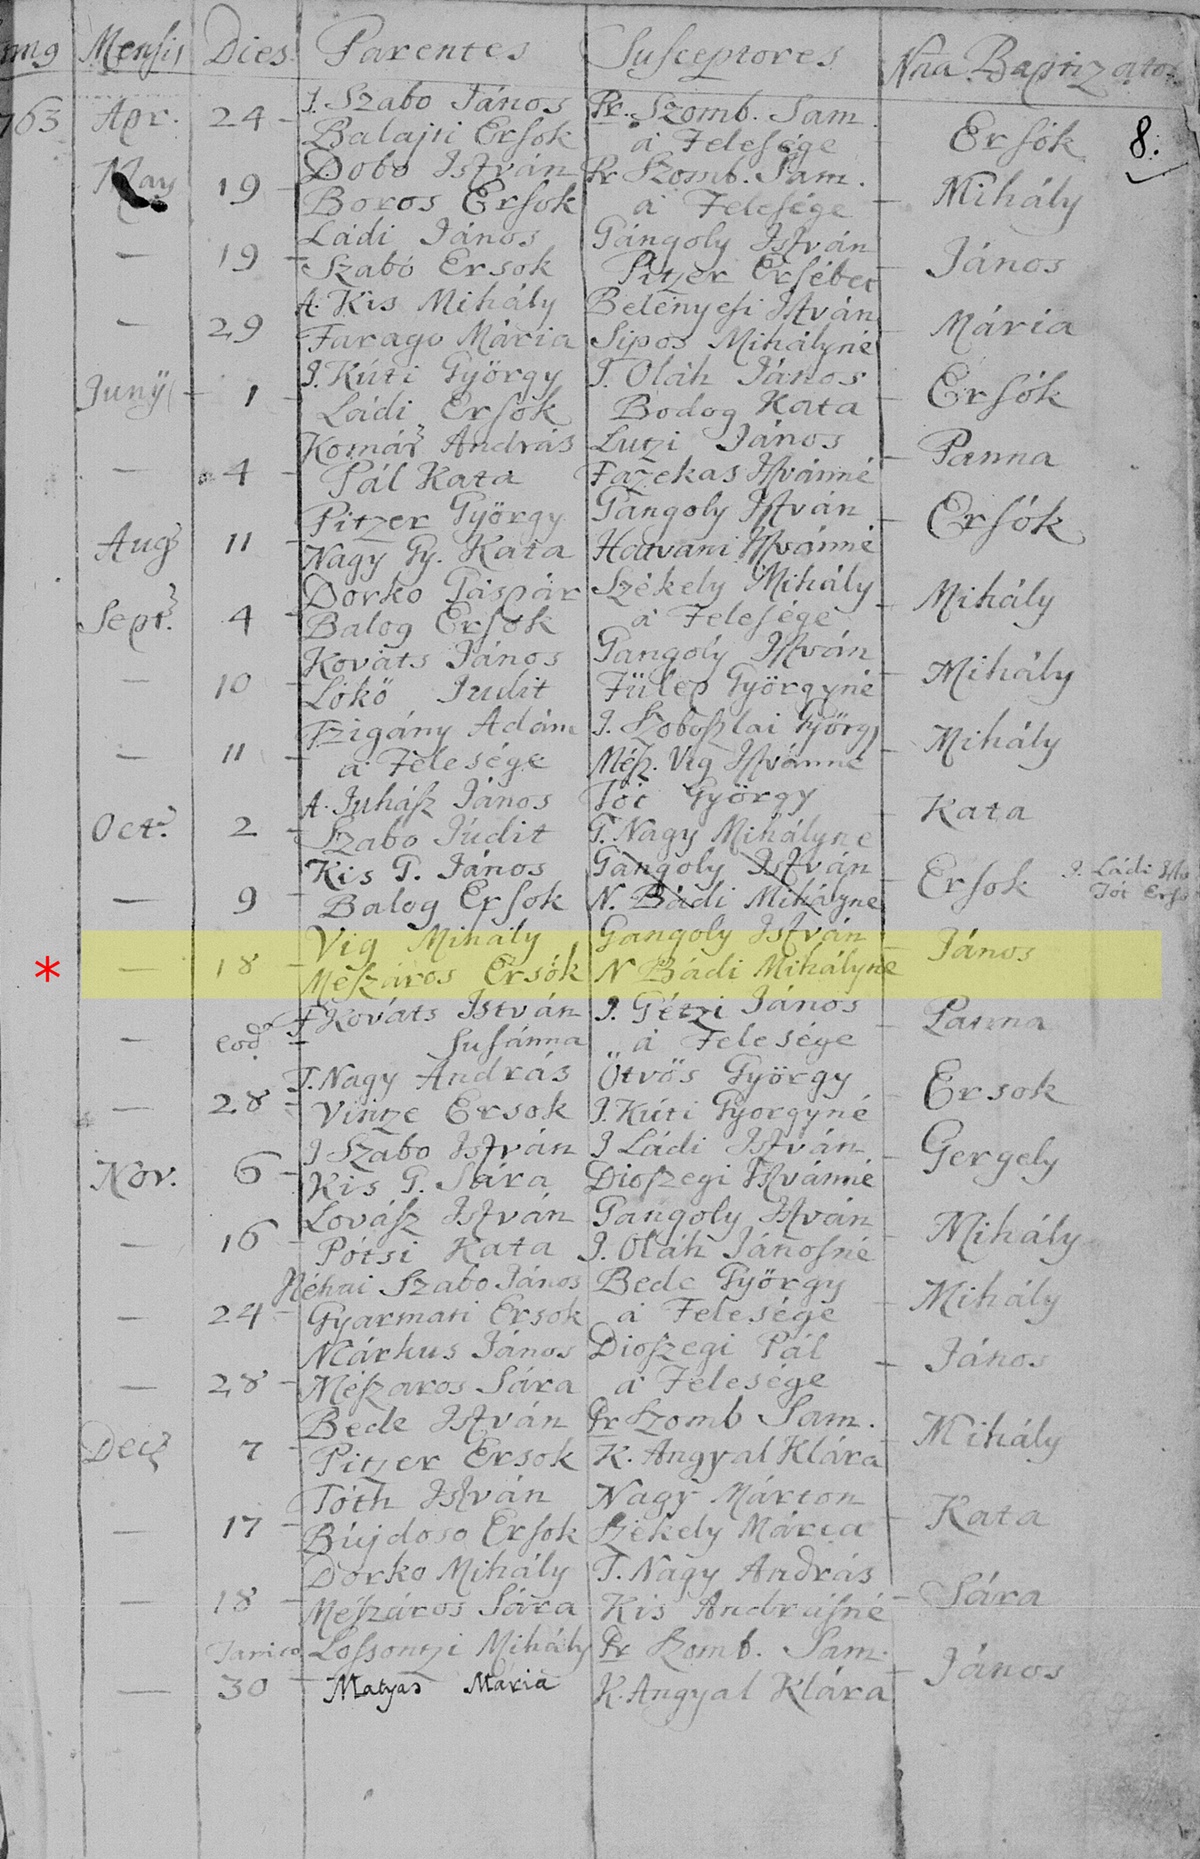 Mensis Dies Parentes Susceptores Nna Baptizator
763 Apr. 24 J. Szabo János Pr. Szomb. Sam.
Balajti Ersok a Felesége Ersók 8.
May 19 Dobo István Pr Szomb. Sam.
Boros Ersok a Felesége Mihály
— 19 Ládi János Gángoly István János
Szabó Ersok Pitzer Ersébet
— 29 A. Kis Mihály Belényesi István Mária
Farago Mária Sipos Mihályné
Junÿ 1 J. Kúti György J. Oláh János Ersók
Ládi Ersok Bodog Kata
— 4 Komár András Lutzi János Panna
Pál Kata Fazekas Istvánné
Aug 11 Pitzer György Gangoly István Ersók
Nagy Gy. Kata Hatvani Istvánné
Sept. 4 Dorko Gáspár Székely Mihály Mihály
Balog Ersok a Felesége
— 10 Kováts János Gangoly István Mihály
Lökö Judit Fülep Györgyné
— 11 Tzigány Adám J. Szoboszlai György Mihály
a Felesége Mész. Vig Istvánné
Oct. 2 A. Juhász János Tót György Kata
Szabo Júdit T. Nagy Mihályne
— 9 Kis G. János Gangoly István Ersok J. Ládi
Balog Ersok N. Bádi Mihályne Tót
* — 18 Vig Mihály Gangoly István János
Mészáros Ersók N Bádi Mihályne
— eod. Kováts István J. Gétzi János Panna
Susánna a Felesége
— 28 T. Nagy András Ötvös György Ersok
Vintze Ersok J. Kúti Györgyné
Nov. 6 J Szabo István J Ládi István Gergely
Kis G. Sára Dioszegi Istvánné
— 16 Lovász István Gangoly István Mihály
Pótsi Kata J. Oláh Jánosné
— 24 Néhai Szabo János Bede György Mihály
Gyarmati Ersok a Felesége
— 28 Márkus János Dioszegi Pál János
Mészaros Sára a Felesége
Dec 7 Bede István Pr Szomb Sam. Mihály
Pitzer Ersok K. Angyal Klára
— 17 Tóth István Nagy Márton Kata
Bújdoso Ersok Székely Mária
— 18 Dorko Mihály T. Nagy András Sára
Mészáros Sára Kis Andrásné
Lossontzi Mihály Pr Szomb. Sam. János
— 30 Matyas Mária K. Angyal Klára